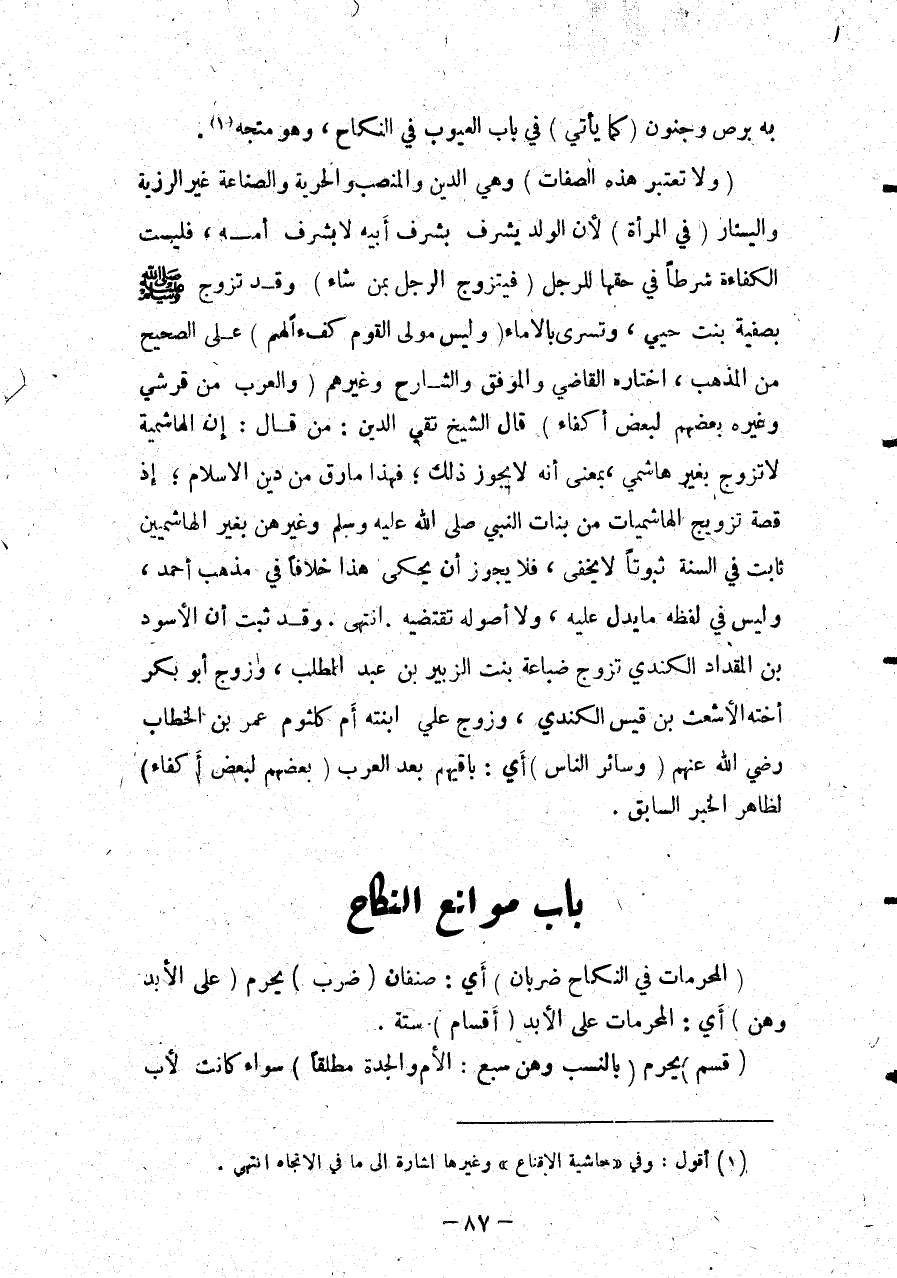 به برص وجنون ( كما يأتي ) في باب العيوب في النكاح ، وهو متجه(١) .
( ولا تعتبر هذه الصفات ) وهي الدين والمنصب والحرية والصناعة غير الرزية
واليسار ( في المرأة ) لأن الولد يشرف بشرف أبيه لا بشرف أمـــه ، فليست
الكفاءة شرطاً في حقها للرجل ( فيتزوج الرجل بمن شاء ) وقــد تزوج ﷺ
بصفية بنت حيي ، وتسرى بالاماء ( وليس مولى القوم كفءاً لهم ) عــلى الصحيح
من المذهب ، اختاره القاضي والموفق والشــارح وغيرهم ( والعرب من قرشي
وغيره بعضهم لبعض أكفاء ) قال الشيخ تقي الدين : من قــال : إن الهاشمية
لا تزوج بغير هاشمي ، بمعنى أنه لا يجوز ذلك ؛ فهذا مارق من دين الاسلام ؛ إذ
قصة تزويج الهاشميات من بنات النبي صلى الله عليه وسلم وغيرهن بغير الهاشميين
ثابت في السنة ثبوتاً لا يخفى ، فلا يجوز أن يحكى هذا خلافاً في مذهب أحمد ،
وليس في لفظه ما يدل عليه ، ولا أصوله تقتضيه . انتهى . وقــد ثبت أن الأسود
بن المقداد الكندي تزوج ضباعة بنت الزبير بن عبد المطلب ، وزوج أبو بكر
أخته الأشعث بن قيس الكندي ، وزوج علي ابنته أم كلثوم عمر بن الخطاب
رضي الله عنهم ( وسائر الناس ) أي : باقيهم بعد العرب ( بعضهم لبعض أكفاء )
لظاهر الخبر السابق .
باب موانع النكاح
( المحرمات في النكاح ضربان ) أي : صنفان ( ضرب ) يحرم ( على الأبد
وهن ) أي : المحرمات على الأبد ( أقسام ) ستة .
( قسم ) يحرم ( بالنسب وهن سبع : الأم والجدة مطلقاً ) سواء كانت لأب
(١) أقول : وفي « حاشية الإقناع » وغيرها اشارة الى ما في الاتجاه انتهى .
– ٨٧ –